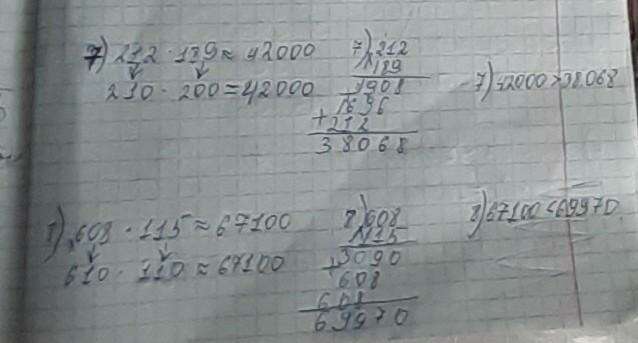 7) 212 · 189 ≈ 42000
210 · 200 = 42000
7) 212
189
1908
1696
+ 212
38068
7) 42000 > 38068
8) 608 · 115 ≈ 67100
610 · 110 ≈ 67100
8) 608
115
3090
+ 608
608
69970
8) 67100 < 69970